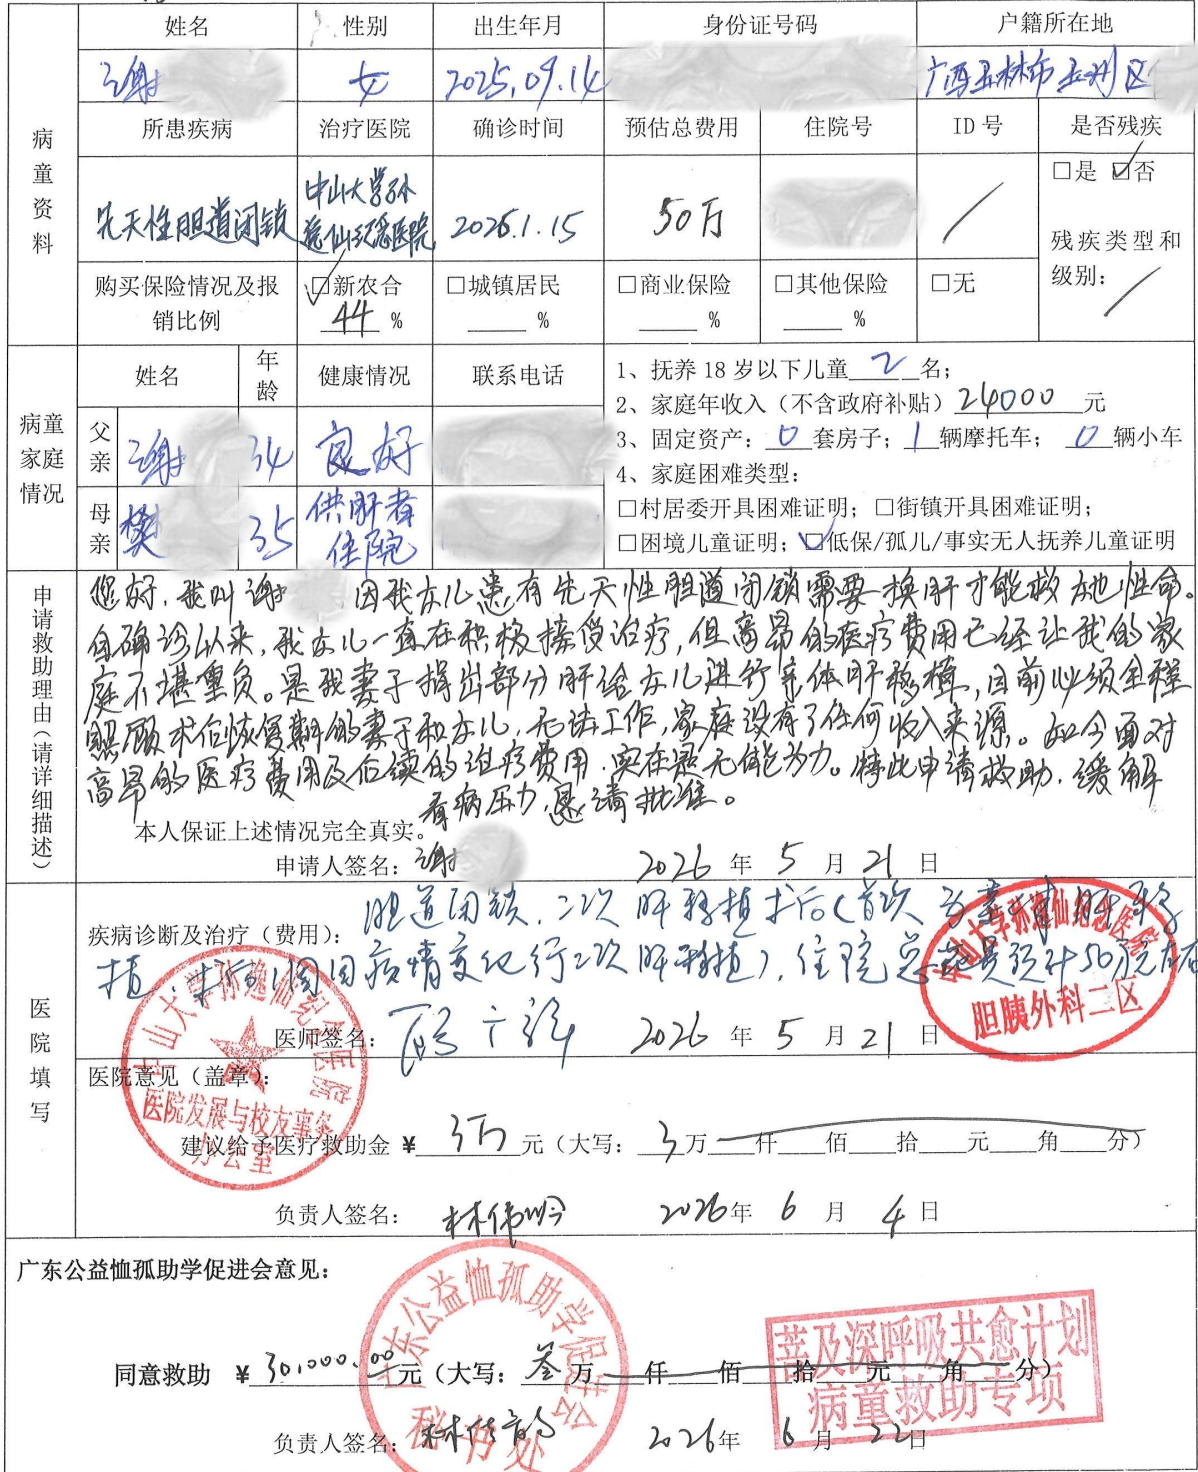 姓名 性别 出生年月 身份证号码 户籍所在地
谢 女 2025.09.14 广西玉林市玉州区
病童资料
所患疾病 治疗医院 确诊时间 预估总费用 住院号 ID号 是否残疾
先天性胆道闭锁 中山大学孙逸仙纪念医院 2026.1.15 50万 / □是 ☑否
残疾类型和级别: /
购买保险情况及报销比例 ☑新农合 44 % □城镇居民 % □商业保险 % □其他保险 % □无
病童家庭情况
姓名 年龄 健康情况 联系电话
父亲 谢 34 良好
母亲 樊 35 供肝者住院
1、抚养18岁以下儿童 2 名;
2、家庭年收入（不含政府补贴）24000 元
3、固定资产: 0 套房子; 1 辆摩托车; 0 辆小车
4、家庭困难类型:
□村居委开具困难证明; □街镇开具困难证明;
□困境儿童证明; ☑低保/孤儿/事实无人抚养儿童证明
申请救助理由（请详细描述）
您好，我叫谢 因我女儿患有先天性胆道闭锁需要换肝才能救她性命。
自确诊以来，我女儿一直在积极接受治疗，但高昂的医疗费用已经让我的家
庭不堪重负。是我妻子捐出部分肝给女儿进行亲体肝移植，目前必须全程
照顾术后恢复期的妻子和女儿，无法工作，家庭没有了任何收入来源。如今面对
高昂的医疗费用及后续的治疗费用，实在是无能为力。特此申请救助，缓解
看病压力，恳请批准。
本人保证上述情况完全真实。
申请人签名: 谢 2026 年 5 月 21 日
医院填写
疾病诊断及治疗（费用）: 胆道闭锁，二次肝移植术后（首次为亲体肝移
植，术后1周因病情变化行二次肝移植），住院总费用预计50万元左右
中山大学孙逸仙纪念医院
胆胰外科二区
医师签名: 2026 年 5 月 21 日
中山大学孙逸仙纪念医院
医院发展与校友事务
办公室
医院意见（盖章）:
建议给予医疗救助金 ¥ 3万 元（大写: 3 万 仟 佰 拾 元 角 分）
负责人签名: 林伟吟 2026年 6 月 4 日
广东公益恤孤助学促进会意见:
广东公益恤孤助学促进会
秘书处
菩及深呼吸共愈计划
病童救助专项
同意救助 ¥ 30,000.00 元（大写: 叁 万 仟 佰 拾 元 角 分）
负责人签名: 2026年 6 月 22日